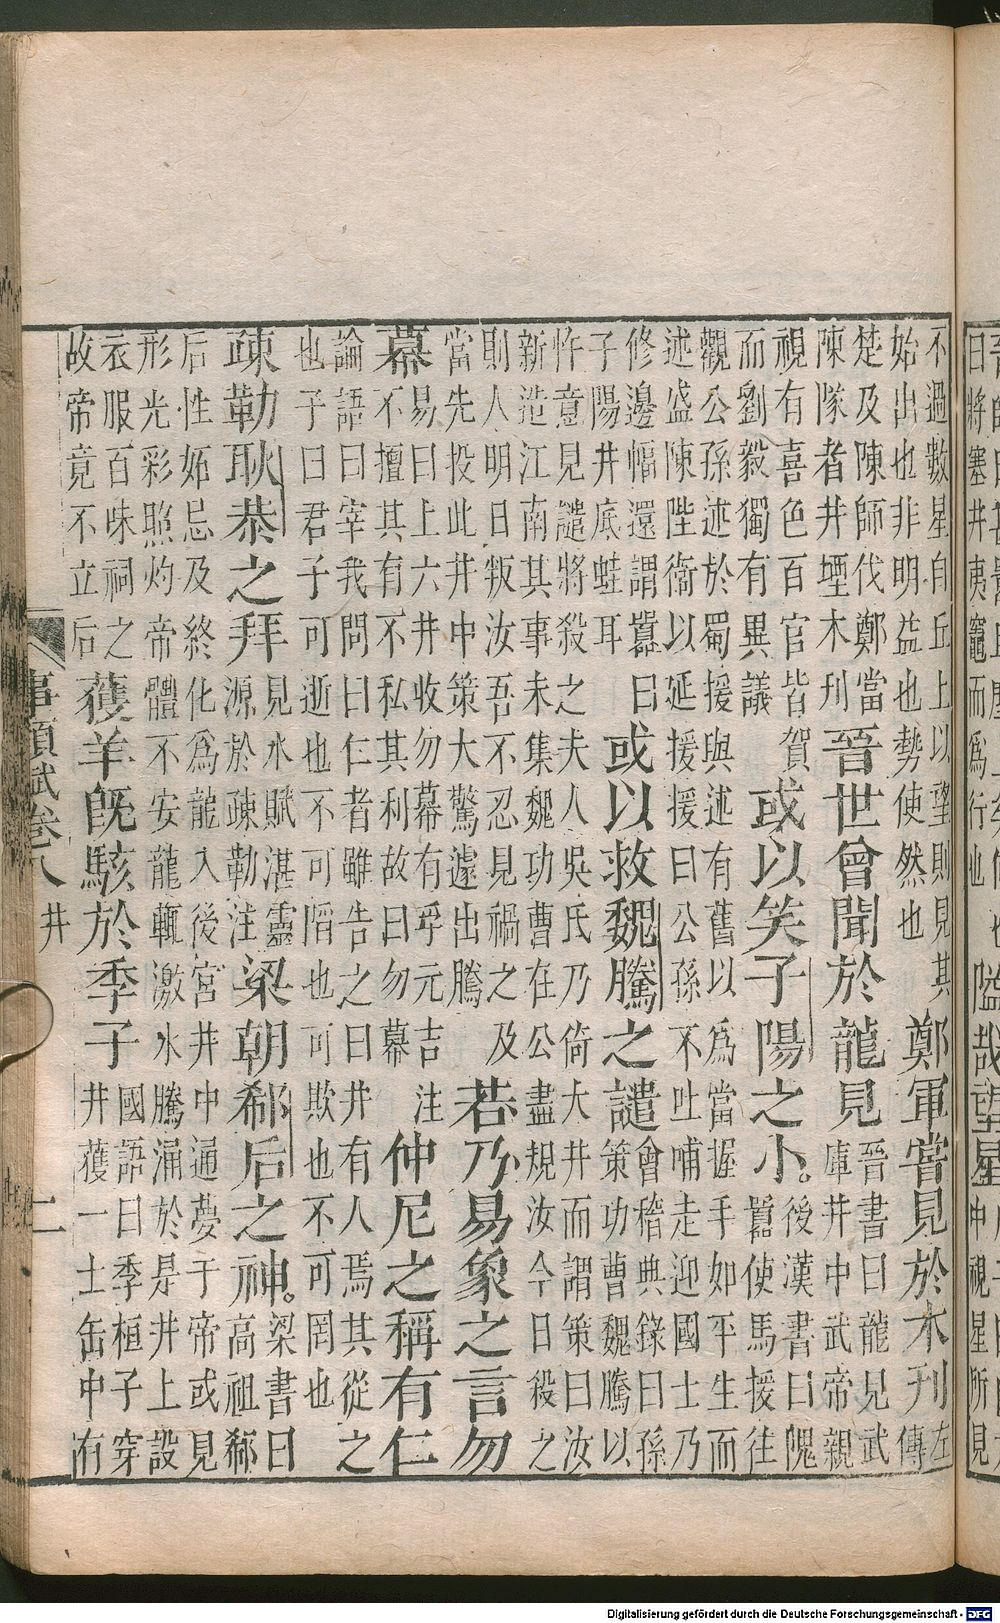 日將塞井夷竈而爲行也
不過數星自丘上以望則見其
始出也非明益也勢使然也
鄭軍嘗見於木刊
左
傳
楚及陳師伐鄭當
陳隧者井堙木刊
晉世曾聞於龍見
晉書曰龍見武
庫井中武帝親
視有喜色百官皆賀
而劉毅獨有異議
或以笑子陽之小。
後漢書曰隗
囂使馬援往
觀公孫述於蜀援與述有舊以爲當握手如平生而
述盛陳陛衞以延援援曰公孫不吐哺走迎國士乃
修邊幅還謂囂曰
子陽井底蛙耳
或以救魏騰之譴
會稽典錄曰孫
策功曹魏騰以
忤意見譴將殺之夫人吳氏乃倚大井而謂策曰汝
新造江南其事未集魏功曹在公盡規汝今日殺之
則人明日叛汝吾不忍見禍之及
當先投此井中策大驚遽出騰
若乃易象之言勿
幕
易曰上六井收勿幕有孚元吉注
不擅其有不私其利故曰勿幕
仲尼之稱有仁
論語曰宰我問曰仁者雖告之曰井有人焉其從之
也子曰君子可逝也不可陷也可欺也不可罔也
疎勒耿恭之拜
見水賦湛靈
源於疎勒注
梁朝郗后之神。
梁書曰
高祖郗
后性妬忌及終化爲龍入後宮井中通夢于帝或見
形光彩照灼帝體不安龍輒激水騰涌於是井上設
衣服百味祠之
故帝竟不立后
獲羊旣駭於季子
國語曰季桓子穿
井獲一土缶中有
事類賦卷八 井 二
Digitalisierung gefördert durch die Deutsche Forschungsgemeinschaft - DFG